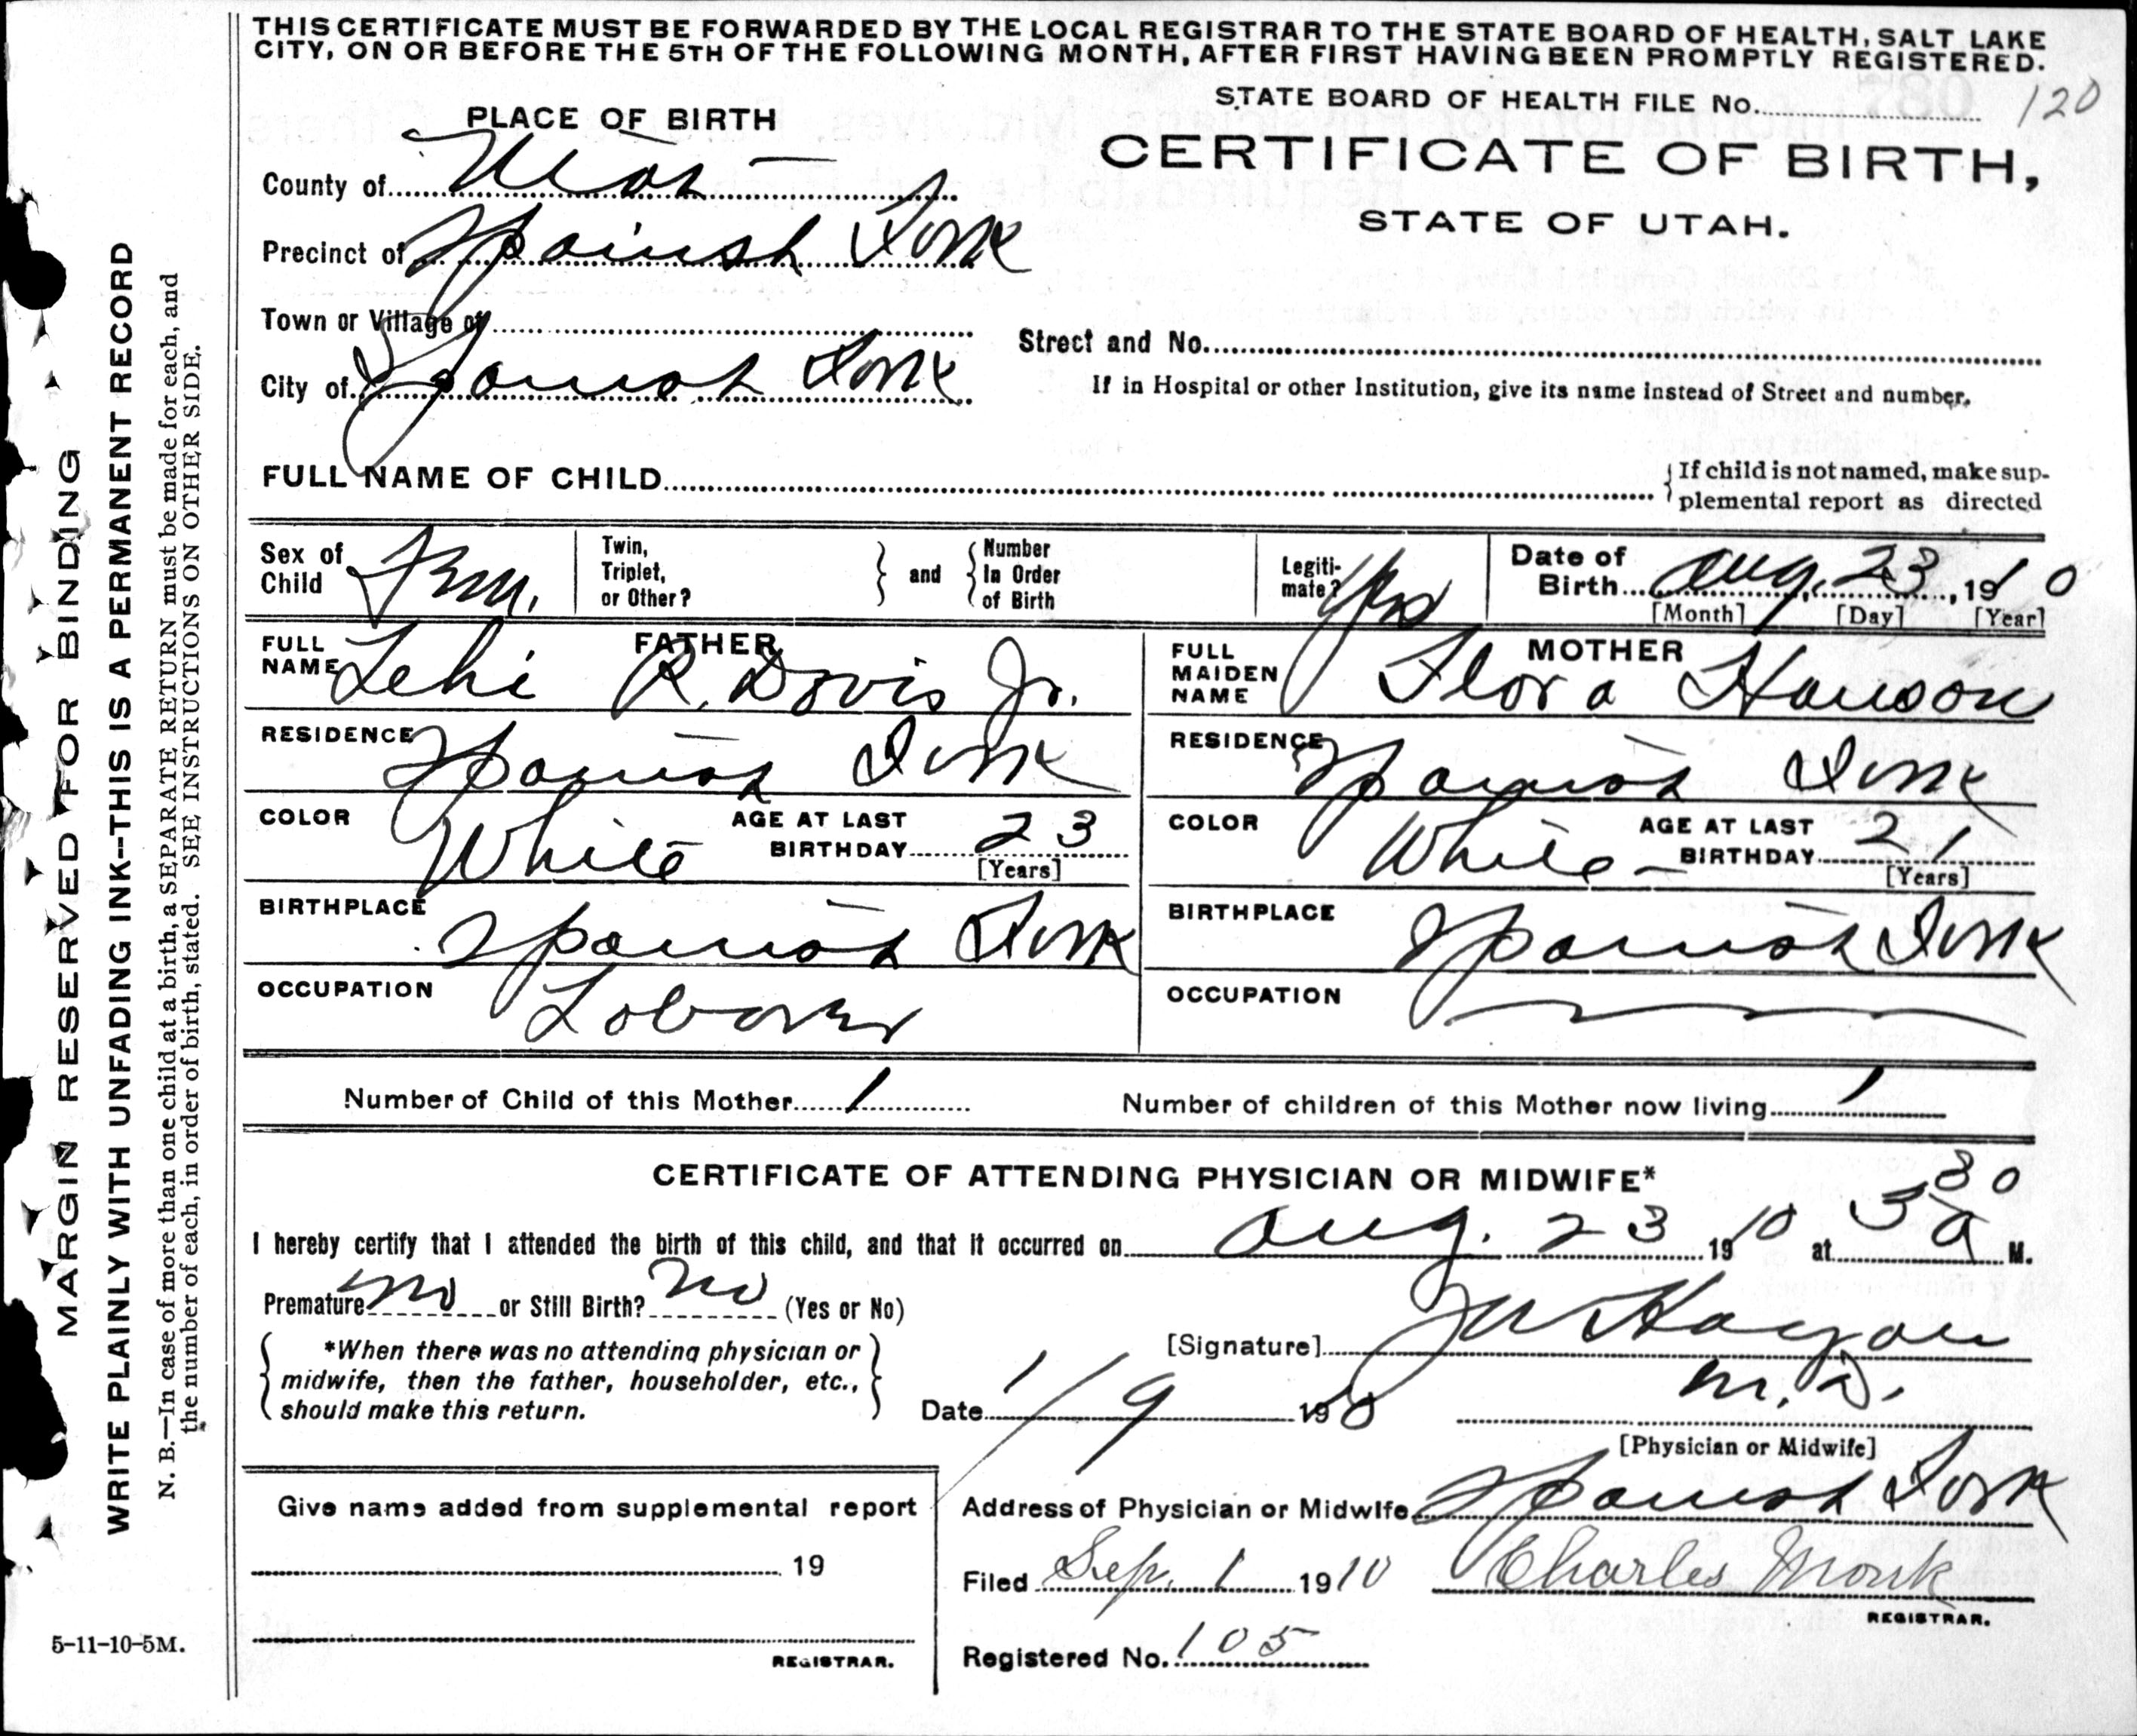 THIS CERTIFICATE MUST BE FORWARDED BY THE LOCAL REGISTRAR TO THE STATE BOARD OF HEALTH, SALT LAKE
CITY, ON OR BEFORE THE 5TH OF THE FOLLOWING MONTH, AFTER FIRST HAVING BEEN PROMPTLY REGISTERED.
STATE BOARD OF HEALTH FILE No. 120
PLACE OF BIRTH
CERTIFICATE OF BIRTH,
STATE OF UTAH.
County of Utah
Precinct of Spanish Fork
Town or Village of
Street and No.
City of Spanish Fork
If in Hospital or other Institution, give its name instead of Street and number.
FULL NAME OF CHILD
If child is not named, make sup-
plemental report as directed
Sex of Child Fem.
Twin, Triplet, or Other?
and
Number In Order of Birth
Legiti-mate? Yes
Date of Birth Aug. 23, 1910
[Month] [Day] [Year]
FATHER
FULL NAME Lehi R. Davis Jr.
RESIDENCE Spanish Fork
COLOR White
AGE AT LAST BIRTHDAY 23
[Years]
BIRTHPLACE Spanish Fork
OCCUPATION Laborer
MOTHER
FULL MAIDEN NAME Flora Hanson
RESIDENCE Spanish Fork
COLOR White
AGE AT LAST BIRTHDAY 21
[Years]
BIRTHPLACE Spanish Fork
OCCUPATION
Number of Child of this Mother 1
Number of children of this Mother now living 1
CERTIFICATE OF ATTENDING PHYSICIAN OR MIDWIFE*
I hereby certify that I attended the birth of this child, and that it occurred on Aug. 23 1910 at 3 30 a M.
Premature no or Still Birth? no (Yes or No)
*When there was no attending physician or
midwife, then the father, householder, etc.,
should make this return.
[Signature] J W Hagan
M.D.
Date 1/9 1910
[Physician or Midwife]
Give name added from supplemental report
19
REGISTRAR.
Address of Physician or Midwife Spanish Fork
Filed Sep. 1 1910 Charles Monk
REGISTRAR.
Registered No. 105
5-11-10-5M.
MARGIN RESERVED FOR BINDING
WRITE PLAINLY WITH UNFADING INK--THIS IS A PERMANENT RECORD
N. B.—In case of more than one child at a birth, a SEPARATE RETURN must be made for each, and
the number of each, in order of birth, stated. SEE INSTRUCTIONS ON OTHER SIDE.